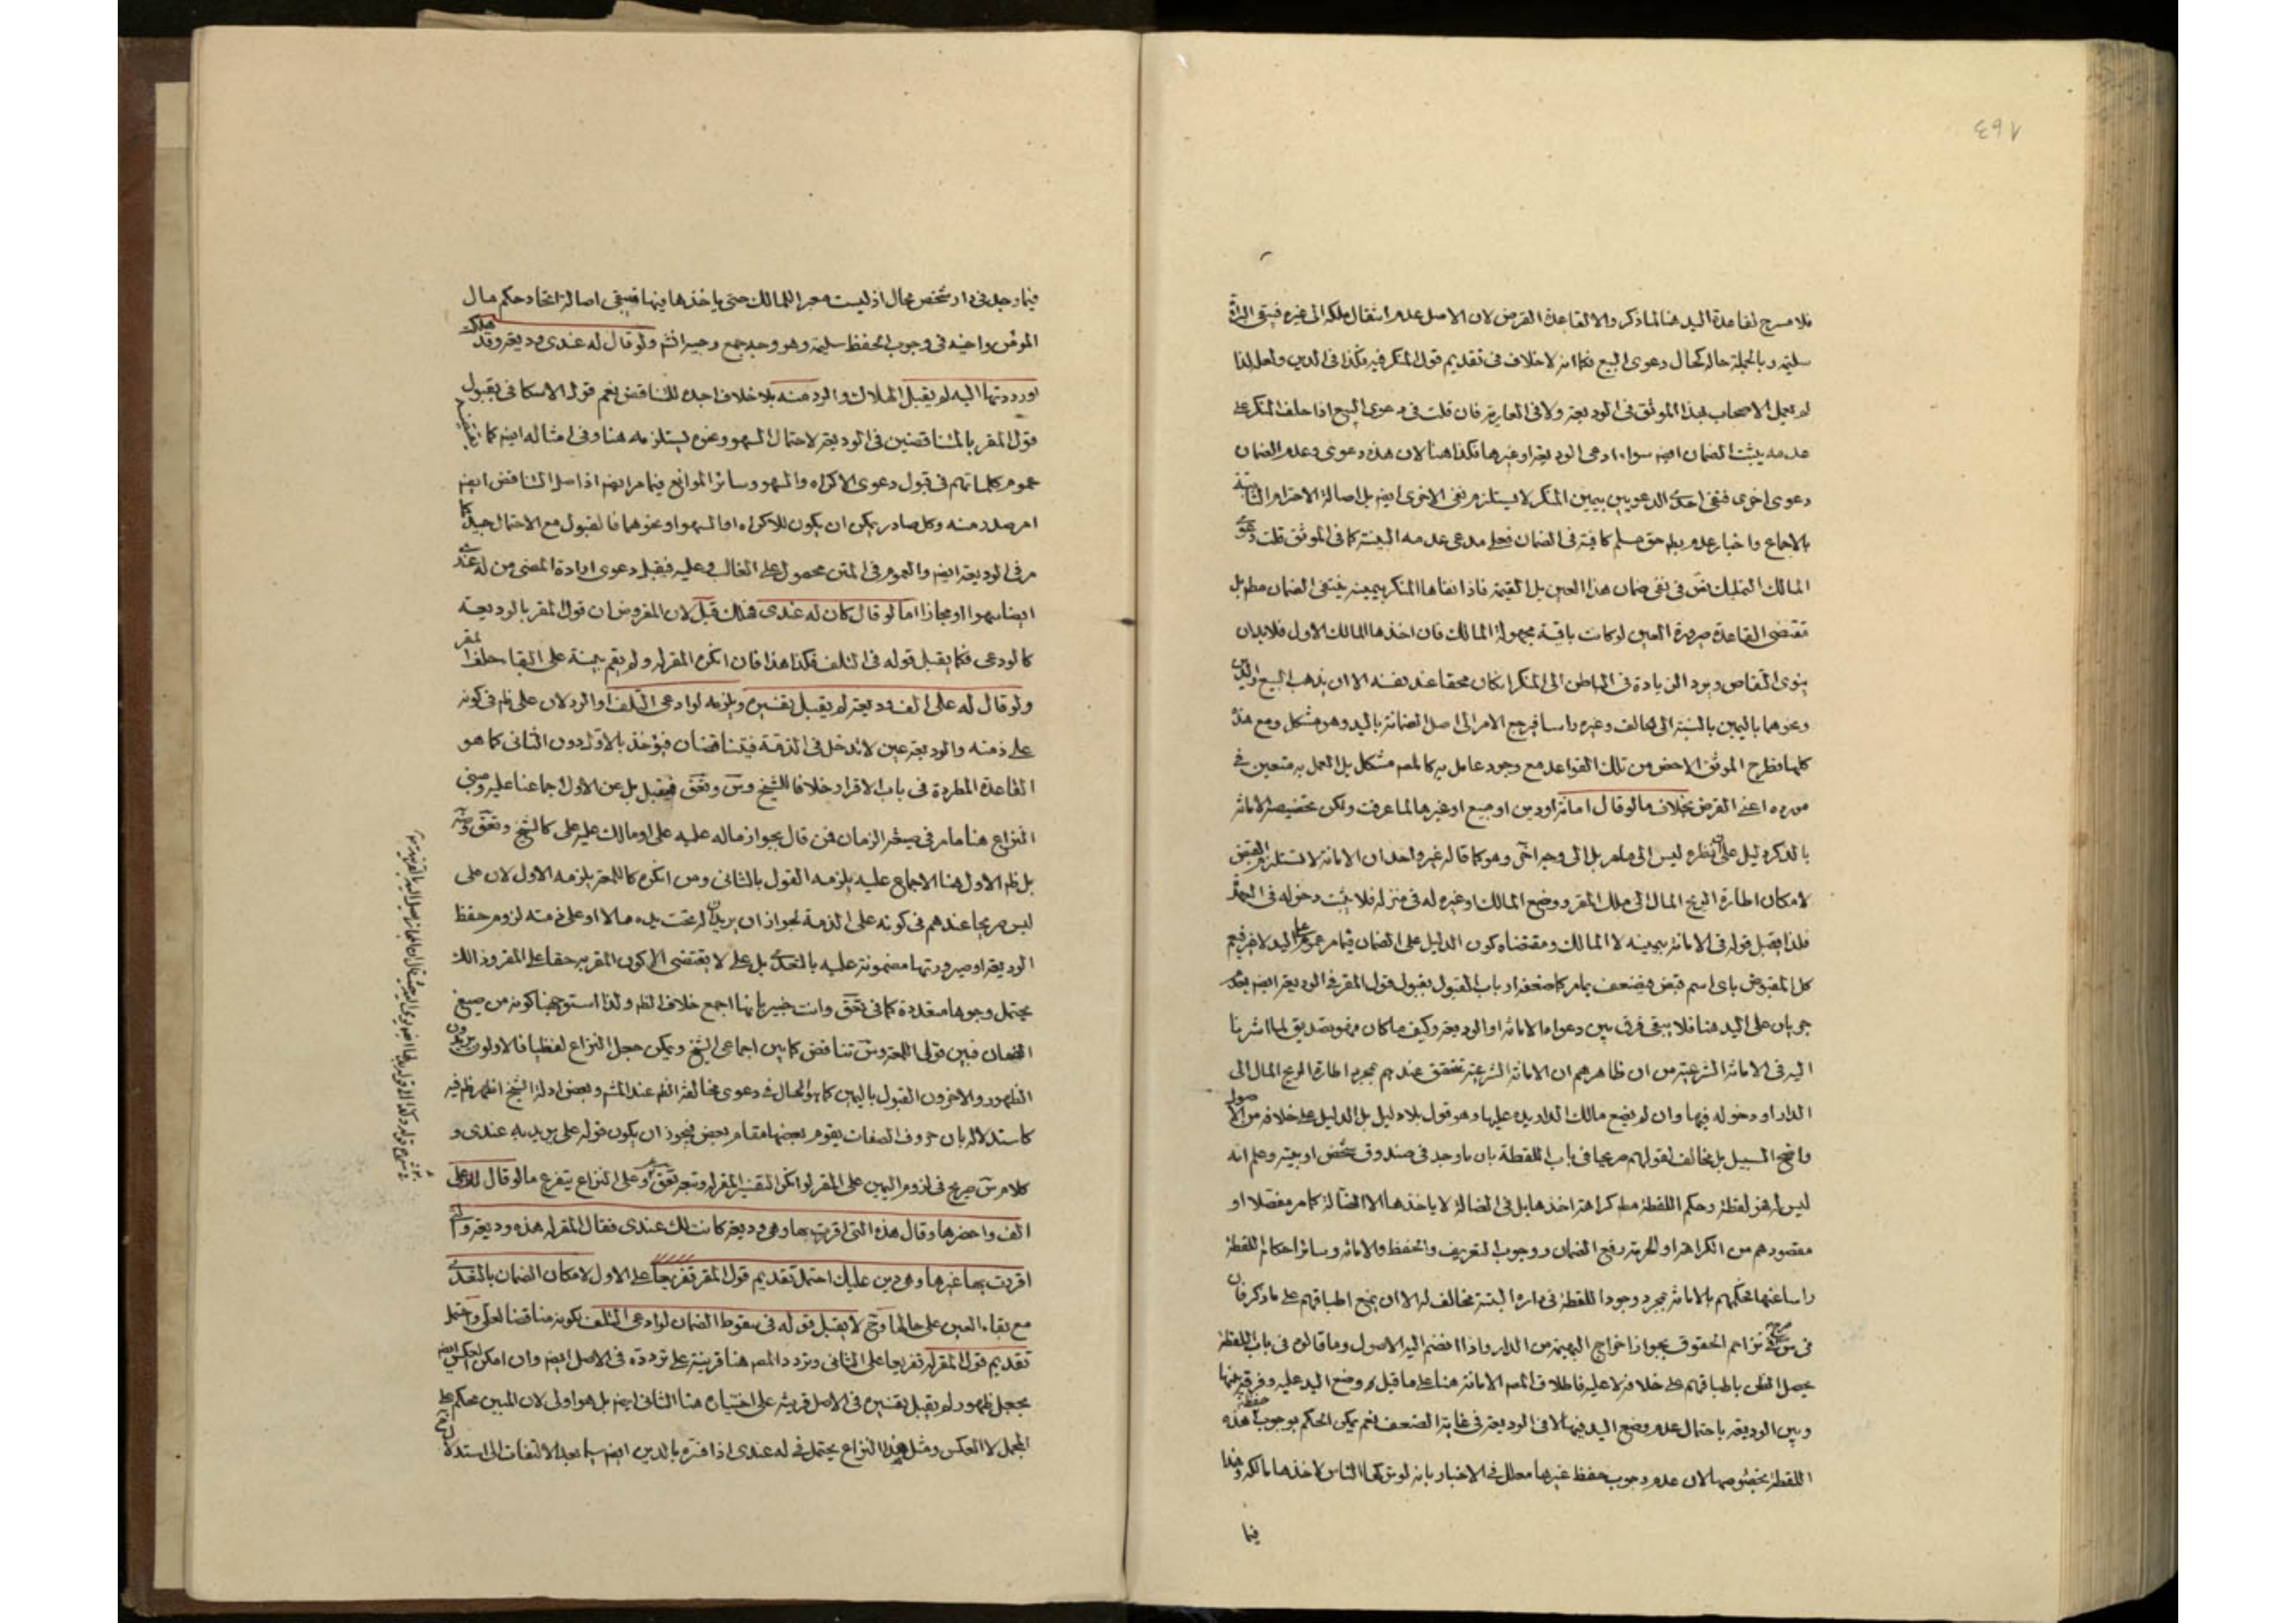 فلا مسرح لقاعدة اليد هنا لما ذكر والا لقاعدة القرض لان الاصل عدم انتقال ملكه الى غيره فيبقى
سليمة وبالجملة حاله كحال دعوى البيع فكما انه لا خلاف فى تقديم قول المنكر فيه فكذا فى الدين ولعل لذا
لم يعمل الاصحاب بهذا الموثق فى الوديعة ولا فى العارية فان قلت فى دعوى البيع اذا حلف المنكر على
عدمه يثبت الضمان ايضا سواء ادعى الوديعة او غيرها فكذا هنا لان هذه دعوى وعدم الضمان
دعوى اخرى فنفى احدى الدعويين بيمين المنكر لا يستلزم نفى الاخرى ايضا بل اصالة الاحترام الثابتة
بالاجماع واخبار عدم حق مسلم كافية فى الضمان فعلى مدعى عدمه البينة كما فى الموثق قلت دعوى
المالك التمليك نص فى نفى ضمان هذا العين بل القيمة فاذا نفاها المنكر بيمينه ينتفى الضمان مطلقا بل
مقتضى القاعدة صيرورة العين لو كانت باقية مجهولة المالك فان اخذها المالك الاول فلا بد ان
ينوى التقاص ويرد الزيادة فى الباطن الى المنكر ان كان محقا عند نفسه الا ان يذهب البيع والدين
ونحوهما باليمين بالنسبة الى الحالف وغيره راسا فيرجع الامر الى اصل الضمانة باليد وهو مشكل ومع هذا
كلها فطرح الموثق الاخص من تلك القواعد مع وجود عامل به كالمصـ مشكل بل العمل به متعين فى
مورده اعنى القرض بخلاف ما لو قال امانة او دين او مبيع او غيرها لما عرفت ولكن تخصيصه الامانة
بالذكر دليل على ان نظره ليس الى ما مر بل الى وجه اخر وهو كما قاله غير واحد ان الامانة لا تستلزم القبض
لامكان اطارة الريح المال الى ملك المقر ووضع المالك او غيره له فى منزله فلا يثبت دخوله فى العهدة
فلذا يقبل قوله فى الامانة بيمينه لا المالك ومقتضاه كون الدليل على الضمان فيما مر عموم على اليد لا غير فيعم
كل المقبوض باى اسم قبض فيضعف بما مر كما ضعفه ارباب القبول بقبول قول المقر فى الوديعة ايضا بعد
جريان على اليد هنا فلا يبقى فرق بين دعواه الامانة او الوديعة وكيف ما كان فهو تصديق لما اشرنا
اليه فى الامانة الشرعية من ان ظاهرهم ان الامانة الشرعية تتحقق عندهم بمجرد اطارة الريح المال الى
الدار او دخوله فيها وان لم يضع مالك الدار يده عليها وهو قول بلا دليل بل الدليل على خلافه من الاصول
واضح السبيل بل مخالف لقولهم صريحا فى باب اللقطة بان ما وجد فى صندوق شخص او بيته وعلم انه
ليس له فهو لقطة وحكم اللقطة مطلقا كراهة اخذها بل فى الضالة لا ياخذها الا الضالة كما مر مفصلا او
مقصودهم من الكراهة او الحرمة رفع الضمان ووجوب التعريف والحفظ والامانة وسائر احكام اللقطة
راسا عنها فحكمهم بالامانة بمجرد وجود اللقطة فى داره البتة مخالف له الا ان يمنع اطباقهم على ما ذكر فان
فى تزاحم الحقوق بجواز اخراج البهيمة من الدار واذا انضم اليه الاصول وما قالوه فى باب اللقطة
يحصل الظن باطباقهم على خلافه لا عليه فاطلاق المصـ الامانة هنا على ما قبل وضع اليد عليه وفرقه بينها
وبين الوديعة باحتمال عدم وضع اليد فيها لا فى الوديعة فى غاية الضعف نعم يمكن الحكم بوجوب حفظ هذه
اللقطة بخصوصها لان عدم وجوب حفظ غيرها معلل فى الاخبار بانه لو تركها الناس لاخذها مالكه وهذا
فيما
فيما وجد فى دار شخص محال اذ ليست معبرا للمالك حتى ياخذها فيها فيبقى اصالة اتحاد حكم مال
المؤمن واخيه فى وجوب الحفظ سليمة وهو وجه جمع وجيه انتهى ولو قال له عندى وديعة وقد هلكت
او رددتها اليه لم يقبل الهلاك والرد منه بلا خلاف اجده للتناقض نعم قول الاسكافى بقبول
قول المقر بالمتناقضين فى الوديعة لاحتمال السهو ونحوه يستلزمه هنا وفى امثاله ايضا كما يقتضيه
عموم كلماتهم فى قبول دعوى الاكراه والسهو وسائر الموانع فيما مر ايضا اذ اصل التناقض ايضا
امر صدر منه وكل صادر يمكن ان يكون للاكراه او السهو او نحوهما فالقبول مع الاحتمال جيد كما
مر فى الوديعة ايضا والعموم فى المتن محمول على الغالب وعليه فيقبل دعوى ارادة المضى من له عندى
ايضا سهوا او مجازا اما لو قال كان له عندى فتلف قبل لان المفروض ان قول المقر بالوديعة
كالودعى فكما يقبل قوله فى التلف فكذا هذا فان انكره المقر له ولم يقم بينة على البقاء حلف المقر
ولو قال له على الف وديعة لم يقبل تفسيره ويلزمه لو ادعى التلف او الرد لان على ظاهر فى كونه
على ذمته والوديعة عين لا تدخل فى الذمة فيتناقضان فيؤخذ بالاول دون الثانى كما هو
القاعدة المطردة فى باب الاقرار خلافا للشيخ وس وتحقق فيقبل بل عن الاول اجماعنا عليه ومبنى
النزاع هنا ما مر فى صيغ الزمان فمن قال بجواز ماله عليه على او مالك عليه على كالشيخ
بل ظاهر الاول هنا الاجماع عليه يلزمه القول بالثانى ومن انكره كاللمعة يلزمه الاول لان على
ليس صريحا عندهم فى كونه على الذمة لجواز ان يريد ان له تحت يده مالا او على ذمته لزوم حفظ
الوديعة او صيرورتها مضمونة عليه بالتعدى بل على لا يقتضى الا كون المقر به حقا على المقر وذلك
يحتمل وجوها متعددة كما فى تحقق وانت خبير بانها اجمع خلاف الظاهر ولذا استوجهنا كونه من صيغ
الضمان فبين قولى اللمعة وس تناقض كما بين اجماعى الشيخ ويمكن جعل النزاع لفظيا فالاولون يريدون
الظهور والاخرون القبول باليمين كما هو الحال فى دعوى مخالفة الظاهر عند المشهور وبعض ادلة الشيخ اظهر ظاهر فيه
كاستدلاله بان حروف الصفات يقوم بعضها مقام بعض فيجوز ان يكون قوله على يريد به عندى و
كلام س صريح فى لزوم اليمين على المقر لو انكر التفسير المقر له وتبعه تحقق وعلى النزاع يتفرع ما لو قال لك على
الف واحضرها وقال هذه التى اقررت بها وهى وديعة كانت لك عندى فقال المقر له هذه وديعة والتى
اقررت بها غيرها وهى دين عليك احتمل تقديم قول المقر تفريعا على الاول لامكان الضمان بالتعدى
مع بقاء العين على حالها وح لا يقبل قوله فى سقوط الضمان لو ادعى التلف لكونه مناقضا لعلى واحتمل
تقديم قول المقر له تفريعا على الثانى وتردد المصـ هنا قرينة على تردده فى الاصل ايضا وان امكن العكس ايضا
بجعل ظهور لم يقبل تفسيره فى الاصل قرينة على اختياره هنا الثانى ايضا بل هو اولى لان المبين محكم على
المجمل لا العكس ومثل هذا النزاع يحتمل فى له عندى اذا فسره بالدين ايضا سيما بعد الالتفات الى استدلال